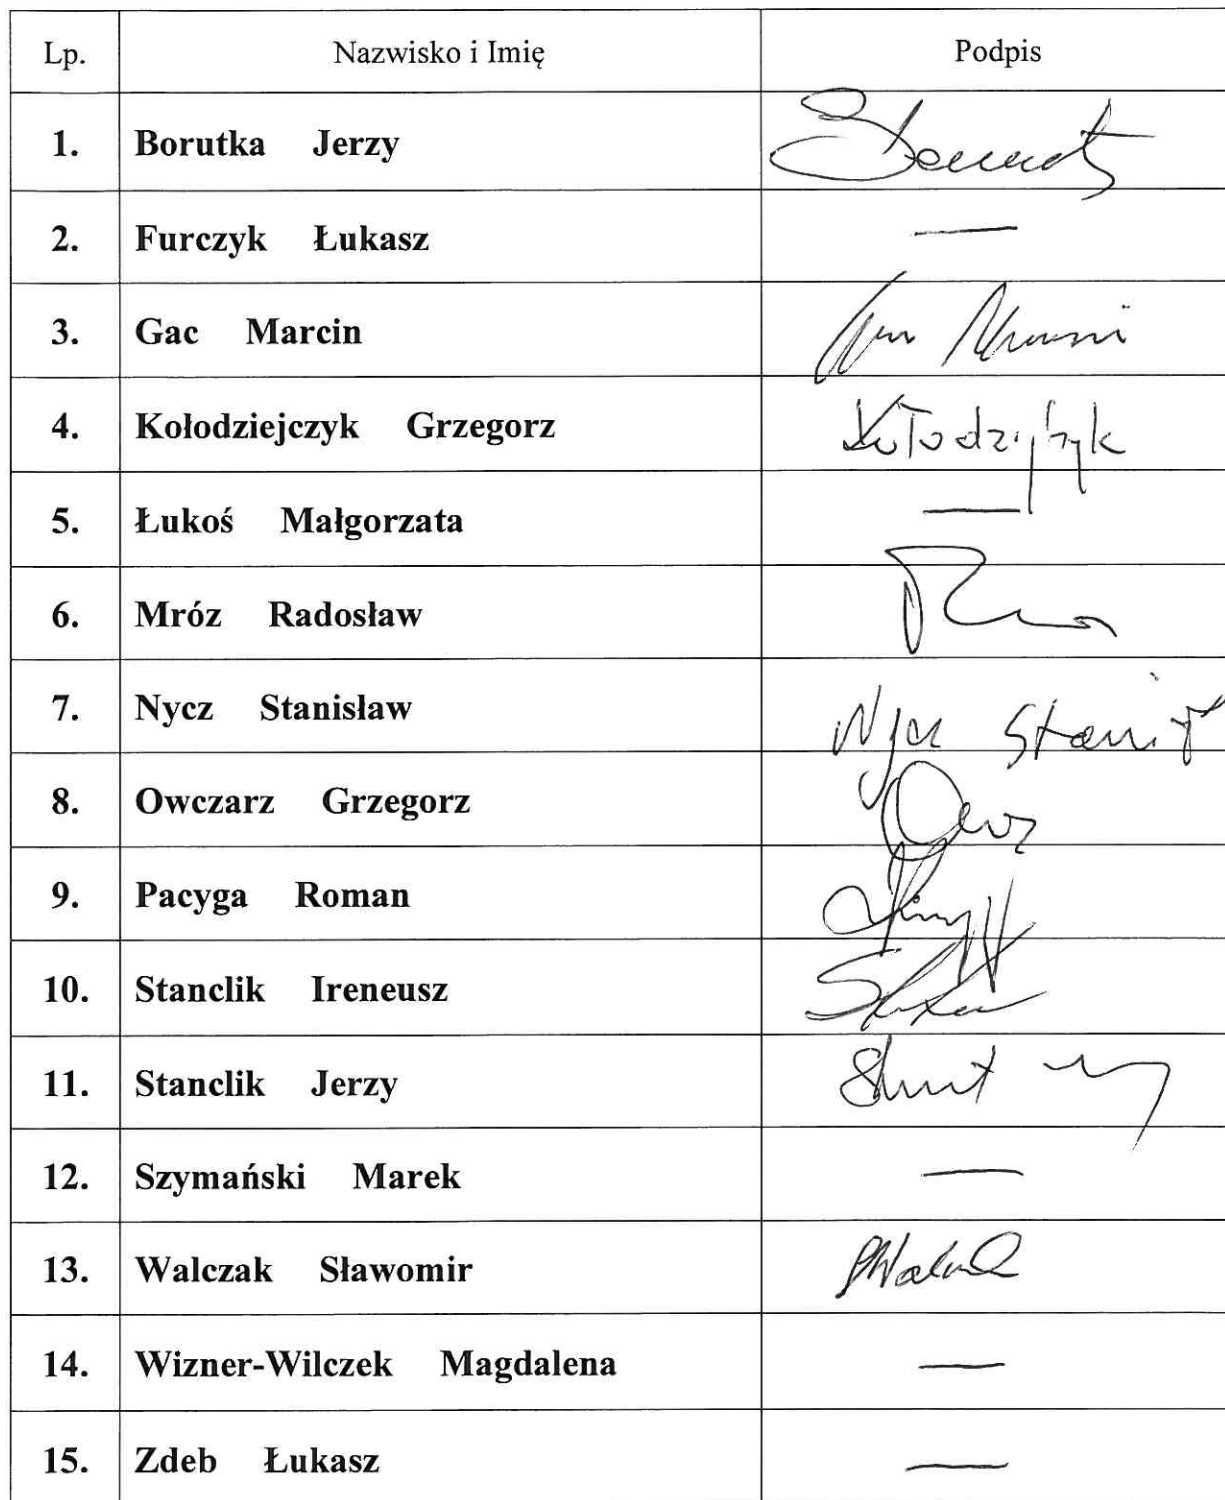 Lp. Nazwisko i Imię Podpis
1. Borutka Jerzy
2. Furczyk Łukasz —
3. Gac Marcin
4. Kołodziejczyk Grzegorz Kołodziejczyk
5. Łukoś Małgorzata —
6. Mróz Radosław
7. Nycz Stanisław Nycz
8. Owczarz Grzegorz
9. Pacyga Roman
10. Stanclik Ireneusz
11. Stanclik Jerzy
12. Szymański Marek —
13. Walczak Sławomir
14. Wizner-Wilczek Magdalena —
15. Zdeb Łukasz —